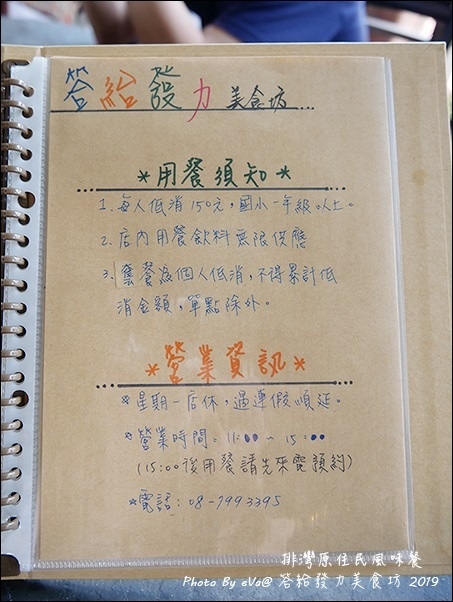 答給發力 美食坊...
*用餐須知*
1. 每人低消150元，國小一年級以上。
2. 店內用餐飲料無限供應
3. 套餐為個人低消，不得累計低
消金額，單點除外。
*營業資訊*
*星期一店休，遇連假順延。
*營業時間：11:00～15:00
(15:00後用餐請先來電預約)
*電話：08-7993395
排灣原住民風味餐
Photo By eVa@ 答給發力美食坊 2019